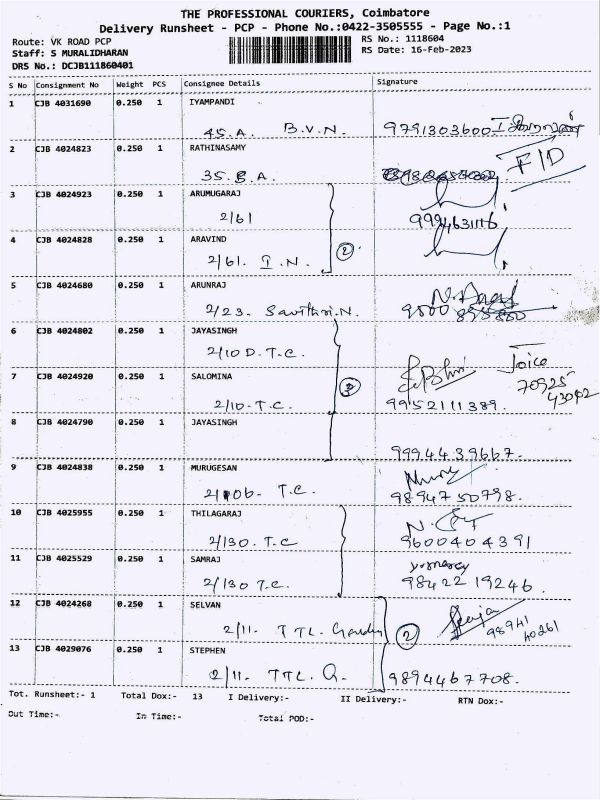 THE PROFESSIONAL COURIERS, Coimbatore
Delivery Runsheet - PCP - Phone No.:0422-3505555 - Page No.:1
Route: VK ROAD PCP RS No.: 1118604
Staff: S MURALIDHARAN RS Date: 16-Feb-2023
DRS No.: DCJB111860401
S No Consignment No Weight PCS Consignee Details Signature
1 CJB 4031690 0.250 1 IYAMPANDI
45.A. B.V.N. 9791303600
2 CJB 4024823 0.250 1 RATHINASAMY F/D
35.B.A.
3 CJB 4024923 0.250 1 ARUMUGARAJ
2/61 9994631116
4 CJB 4024828 0.250 1 ARAVIND
2/61. I.N. 2
5 CJB 4024680 0.250 1 ARUNRAJ
2/23. Savithri.N.
6 CJB 4024802 0.250 1 JAYASINGH
2/10 D.T.C.
7 CJB 4024920 0.250 1 SALOMINA Joice
2/10.T.C. 9952111389. 70925 43042
8 CJB 4024790 0.250 1 JAYASINGH
9994439667.
9 CJB 4024838 0.250 1 MURUGESAN
T.C. 9894750798.
10 CJB 4025955 0.250 1 THILAGARAJ
2/130. T.C 9600404391
11 CJB 4025529 0.250 1 SAMRAJ
2/130 T.C. 98422 19246.
12 CJB 4024268 0.250 1 SELVAN
2/11. TTL. Garden 2 98941 40261
13 CJB 4029076 0.250 1 STEPHEN
2/11. TTL. G. 9894467708.
Tot. Runsheet:- 1 Total Dox:- 13 I Delivery:- II Delivery:- RTN Dox:-
Out Time:- In Time:- Total POD:-